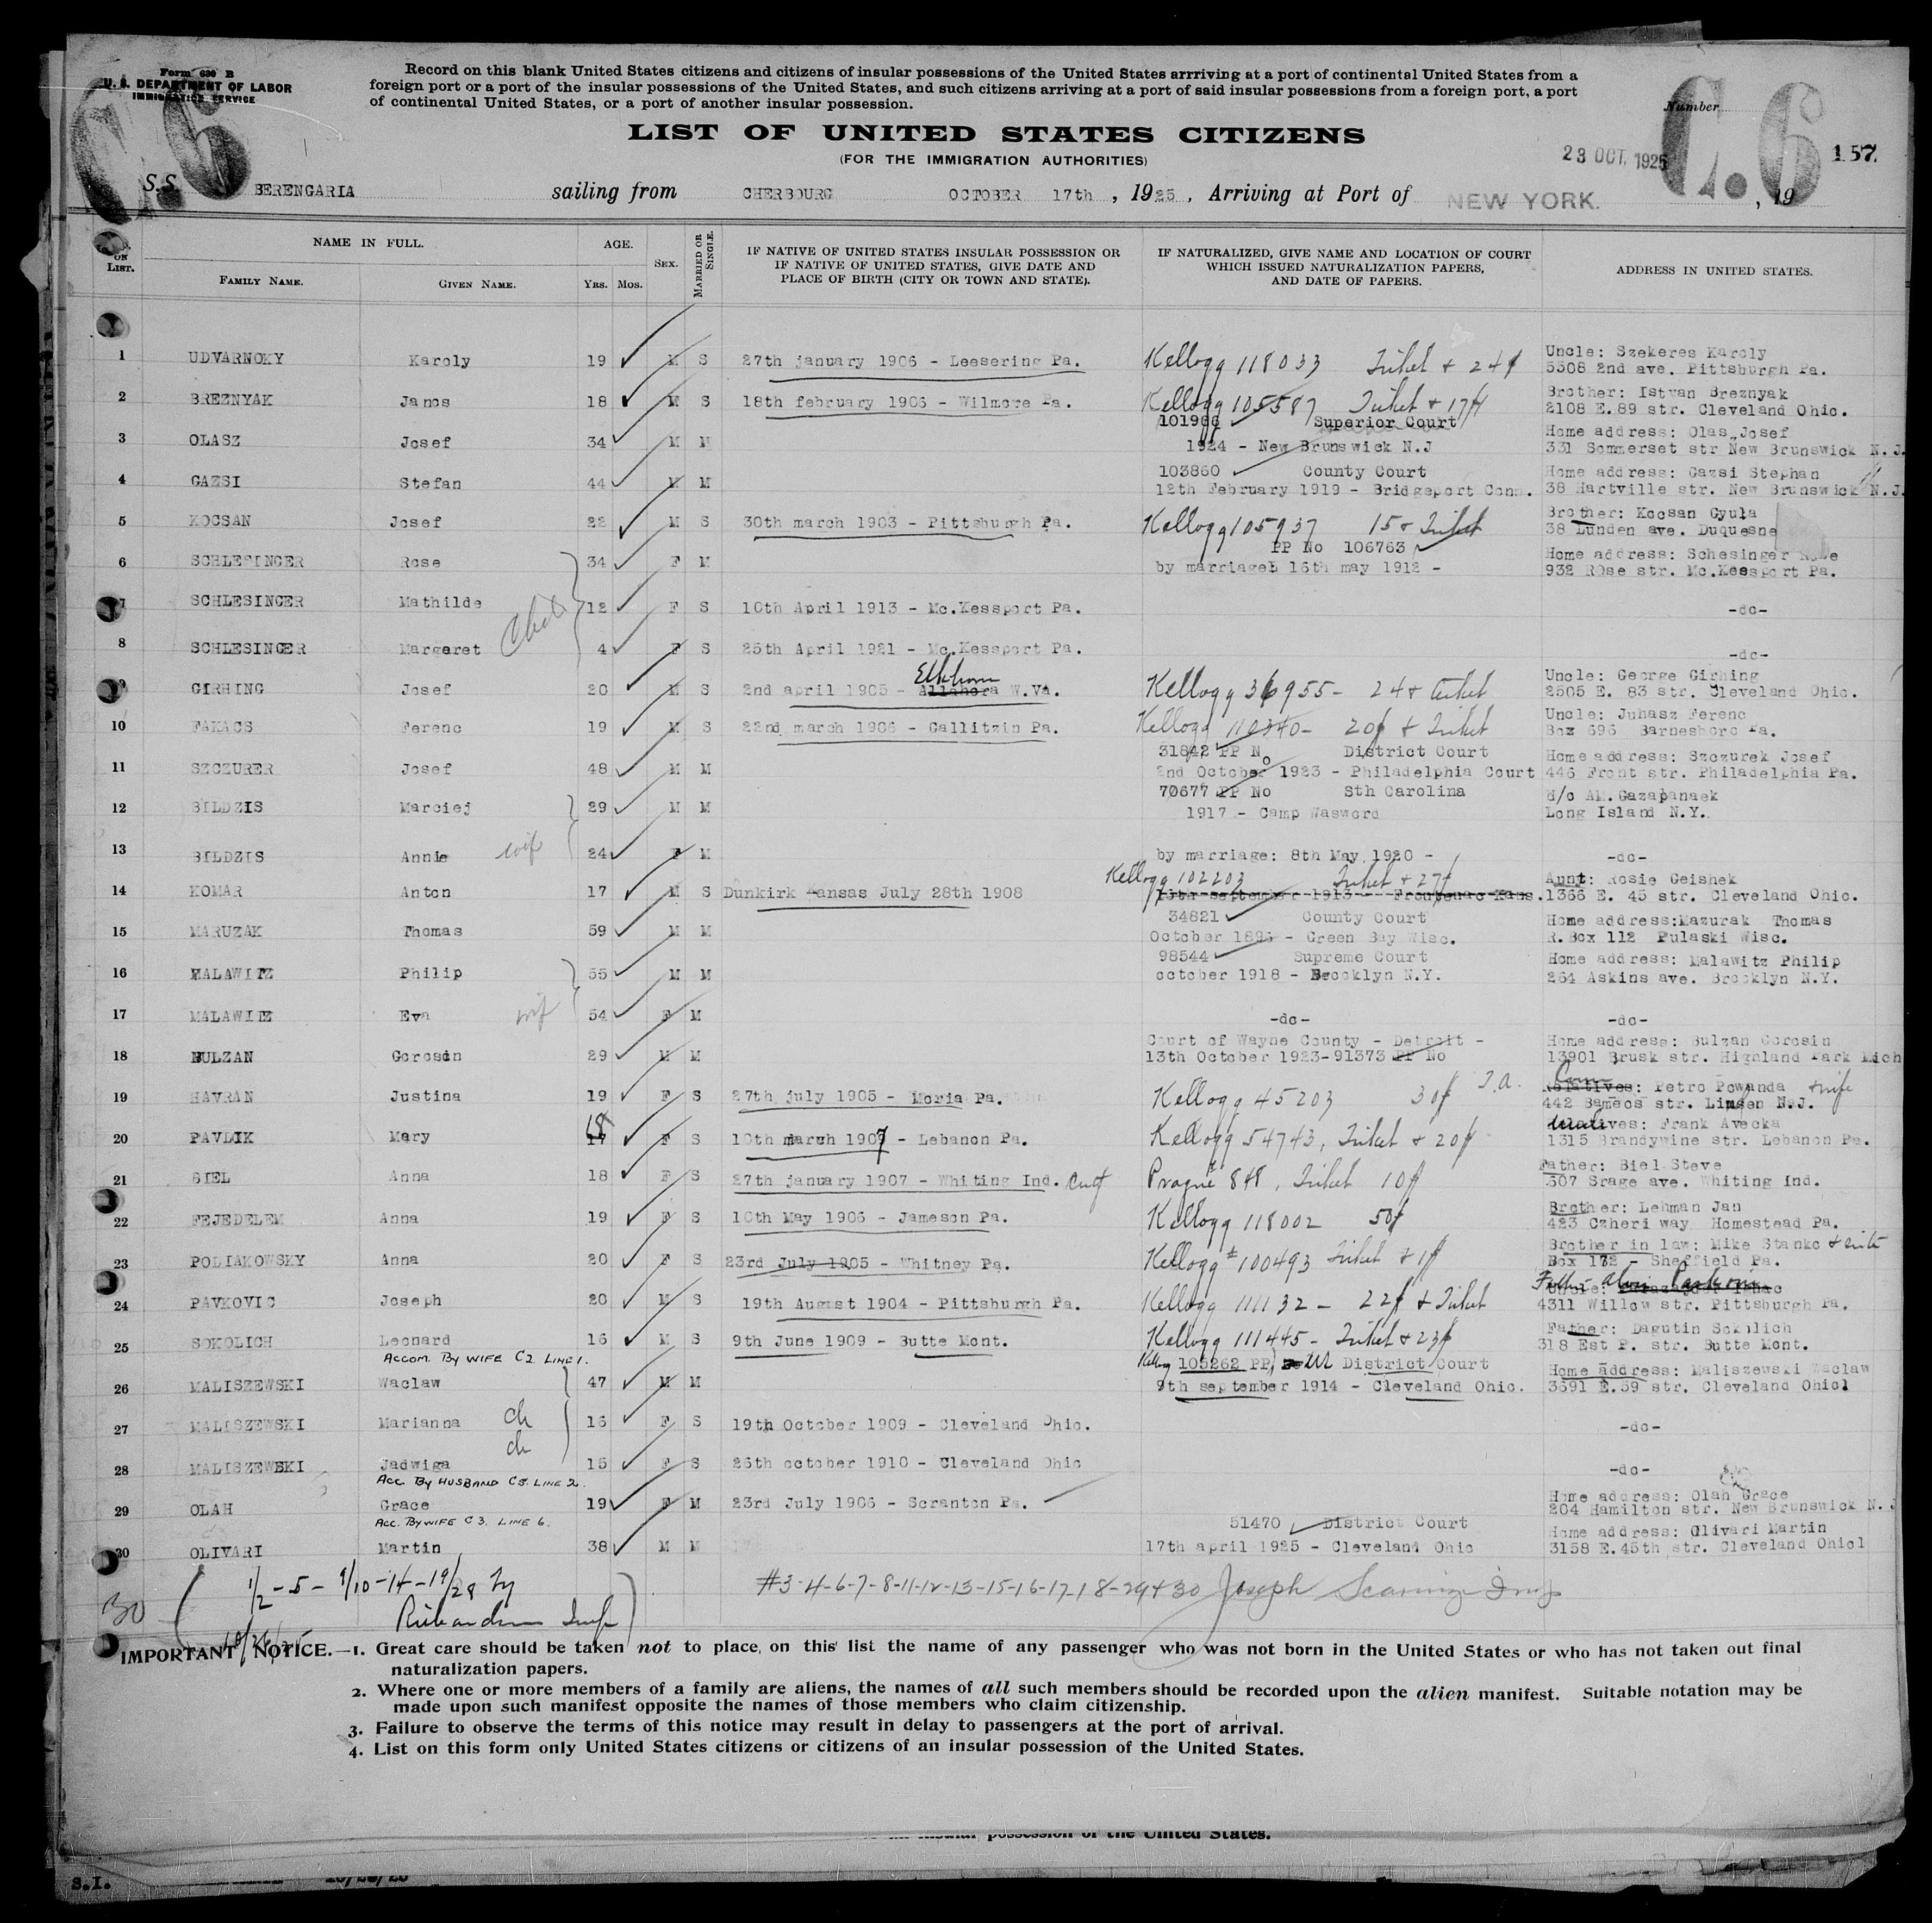 Form 630 B
U. S. DEPARTMENT OF LABOR
IMMIGRATION SERVICE
Record on this blank United States citizens and citizens of insular possessions of the United States arrriving at a port of continental United States from a
foreign port or a port of the insular possessions of the United States, and such citizens arriving at a port of said insular possessions from a foreign port, a port
of continental United States, or a port of another insular possession.
Number
C.6
C.6
LIST OF UNITED STATES CITIZENS
(FOR THE IMMIGRATION AUTHORITIES)
23 OCT. 1925
157
S.S. BERENGARIA sailing from CHERBOURG OCTOBER 17th , 1925 , Arriving at Port of NEW YORK. , 19
ON LIST.
NAME IN FULL.
FAMILY NAME.
GIVEN NAME.
AGE.
YRS. MOS.
SEX.
MARRIED OR SINGLE.
IF NATIVE OF UNITED STATES INSULAR POSSESSION OR
IF NATIVE OF UNITED STATES, GIVE DATE AND
PLACE OF BIRTH (CITY OR TOWN AND STATE).
IF NATURALIZED, GIVE NAME AND LOCATION OF COURT
WHICH ISSUED NATURALIZATION PAPERS,
AND DATE OF PAPERS.
ADDRESS IN UNITED STATES.
1 UDVARNOKY Karoly 19 M S 27th january 1906 - Leesering Pa. Kellogg 118033 Ticket + 24 Uncle: Szekeres Karoly
5308 2nd ave. Pittsburgh Pa.
2 BREZNYAK Janos 18 M S 18th february 1906 - Wilmore Pa. Kellogg 105587 Ticket + 17 Brother: Istvan Breznyak
2108 E.89 str. Cleveland Ohio.
3 OLASZ Josef 34 M M Superior Court Home address: Olas Josef
1924 - New Brunswick N.J 331 Sommerset str New Brunswick N.J.
4 GAZSI Stefan 44 M M 103860 County Court Home address: Gazsi Stephan
12th February 1919 - Bridgeport Conn. 38 Hartville str. New Brunswick N.J.
5 KOCSAN Josef 22 M S 30th march 1903 - Pittsburgh Pa. Kellogg 105937 15 + Ticket Brother: Kocsan Gyula
38 Lunden ave. Duquesne
6 SCHLESINGER Rose 34 F M PP No 106763 Home address: Schesinger
by marriage 16th may 1912 - 932 ROse str. Mc.Keesport Pa.
7 SCHLESINGER Mathilde 12 F S 10th April 1913 - Mc.Kessport Pa. -do-
8 SCHLESINGER Margaret 4 F S 25th April 1921 - Mc.Kessport Pa. -do-
9 GIRHING Josef 20 M S 2nd april 1905 - Elkhorn W.Va. Kellogg 36955 - 24 + ticket Uncle: George Girhing
2505 E. 83 str. Cleveland Ohio.
10 FAKACS Ferenc 19 M S 22nd march 1906 - Gallitzin Pa. Kellogg 110340 - 20 + Ticket Uncle: Juhasz Ferenc
Box 696 Barnesboro Pa.
11 SZCZURER Josef 48 M M 31842 PP No District Court Home address: Szczurek Josef
2nd October 1923 - Philadelphia Court 446 Front str. Philadelphia Pa.
12 BILDZIS Marciej 29 M M 70677 PP No Sth Carolina c/o AM. Gazapanaek
1917 - Camp Wasword Long Island N.Y.
13 BILDZIS Annie wife 24 F M by marriage: 8th May 1920 - -do-
14 KOMAR Anton 17 M S Dunkirk Kansas July 28th 1908 Kellogg 102203 Ticket + 27 Aunt: Rosie Geishek
13th september 1913 - Frontenac Kans. 1366 E. 45 str. Cleveland Ohio.
15 MARUZAK Thomas 59 M M 34821 County Court Home address: Mazurak Thomas
October 1893 - Green Bay Wisc. R.Box 112 Pulaski Wisc.
16 MALAWITZ Philip 55 M M 98544 Supreme Court Home address: Malawitz Philip
october 1918 - Brooklyn N.Y. 264 Askins ave. Brooklyn N.Y.
17 MALAWITZ Eva wif 54 F M -do- -do-
18 BULZAN Gorosin 29 M M Court of Wayne County - Detroit - Home address: Bulzan Gorosin
13th October 1923-91373 PP No 13901 Brusk str. Highland Park Mich
19 HAVRAN Justina 19 F S 27th july 1905 - Moria Pa. Kellogg 45203 30 Relatives: Petro Powanda + wife
442 Bameos str. Linden N.J.
20 PAVLIK Mary 18 F S 10th march 1907 - Lebanon Pa. Kellogg 54743, Ticket + 20 Relatives: Frank Avecka
1315 Brandywine str. Lebanon Pa.
21 BIEL Anna 18 F S 27th january 1907 - Whiting Ind. Cert Prague 848, Ticket 10 Father: Biel Steve
307 Srage ave. Whiting Ind.
22 FEJEDELEM Anna 19 F S 10th May 1906 - Jameson Pa. Kellogg 118002 50 Brother: Lehman Jan
423 Czheri way Homestead Pa.
23 POLIAKOWSKY Anna 20 F S 23rd July 1905 - Whitney Pa. Kellogg # 100493 Ticket + 1 Brother in law: Mike Stanko
Box 172 - Sheffield Pa.
24 PAVKOVIC Joseph 20 M S 19th August 1904 - Pittsburgh Pa. Kellogg 111132 - 22 + Ticket Father
4311 Willow str. Pittsburgh Pa.
25 SOKOLICH Leonard 16 M S 9th June 1909 - Butte Mont. Kellogg 111445 - Ticket + 23 Father: Dagutin Sokolich
318 Est P. str. Butte Mont.
ACCOM. BY WIFE C2 LINE 1.
26 MALISZEWSKI Waclaw 47 M M Kellogg 105262 PP District Court Home address: Maliszewski Waclaw
9th september 1914 - Cleveland Ohio. 3691 E.59 str. Cleveland Ohio
27 MALISZEWSKI Marianna ch 16 F S 19th October 1909 - Cleveland Ohio. -do-
28 MALISZEWSKI Jadwiga ch 15 F S 26th october 1910 - Cleveland Ohio -do-
ACC. BY HUSBAND C5. LINE 2.
29 OLAH Grace 19 F M 23rd July 1906 - Scranton Pa. Home address: Olah Grace
204 Hamilton str. New Brunswick N.J
ACC. BY WIFE C3. LINE 6.
30 OLIVARI Martin 38 M M 51470 District Court Home address: Olivari Martin
17th april 1925 - Cleveland Ohio 3158 E.45th str. Cleveland Ohio
30
1/2 - 5 - 9/10 - 14 - 19/28
#3-4-6-7-8-11-12-13-15-16-17-18-29+30 Joseph
Richardson Insp
IMPORTANT NOTICE.—1. Great care should be taken not to place on this list the name of any passenger who was not born in the United States or who has not taken out final
naturalization papers.
2. Where one or more members of a family are aliens, the names of all such members should be recorded upon the alien manifest. Suitable notation may be
made upon such manifest opposite the names of those members who claim citizenship.
3. Failure to observe the terms of this notice may result in delay to passengers at the port of arrival.
4. List on this form only United States citizens or citizens of an insular possession of the United States.
possession of the United States.
S.I.